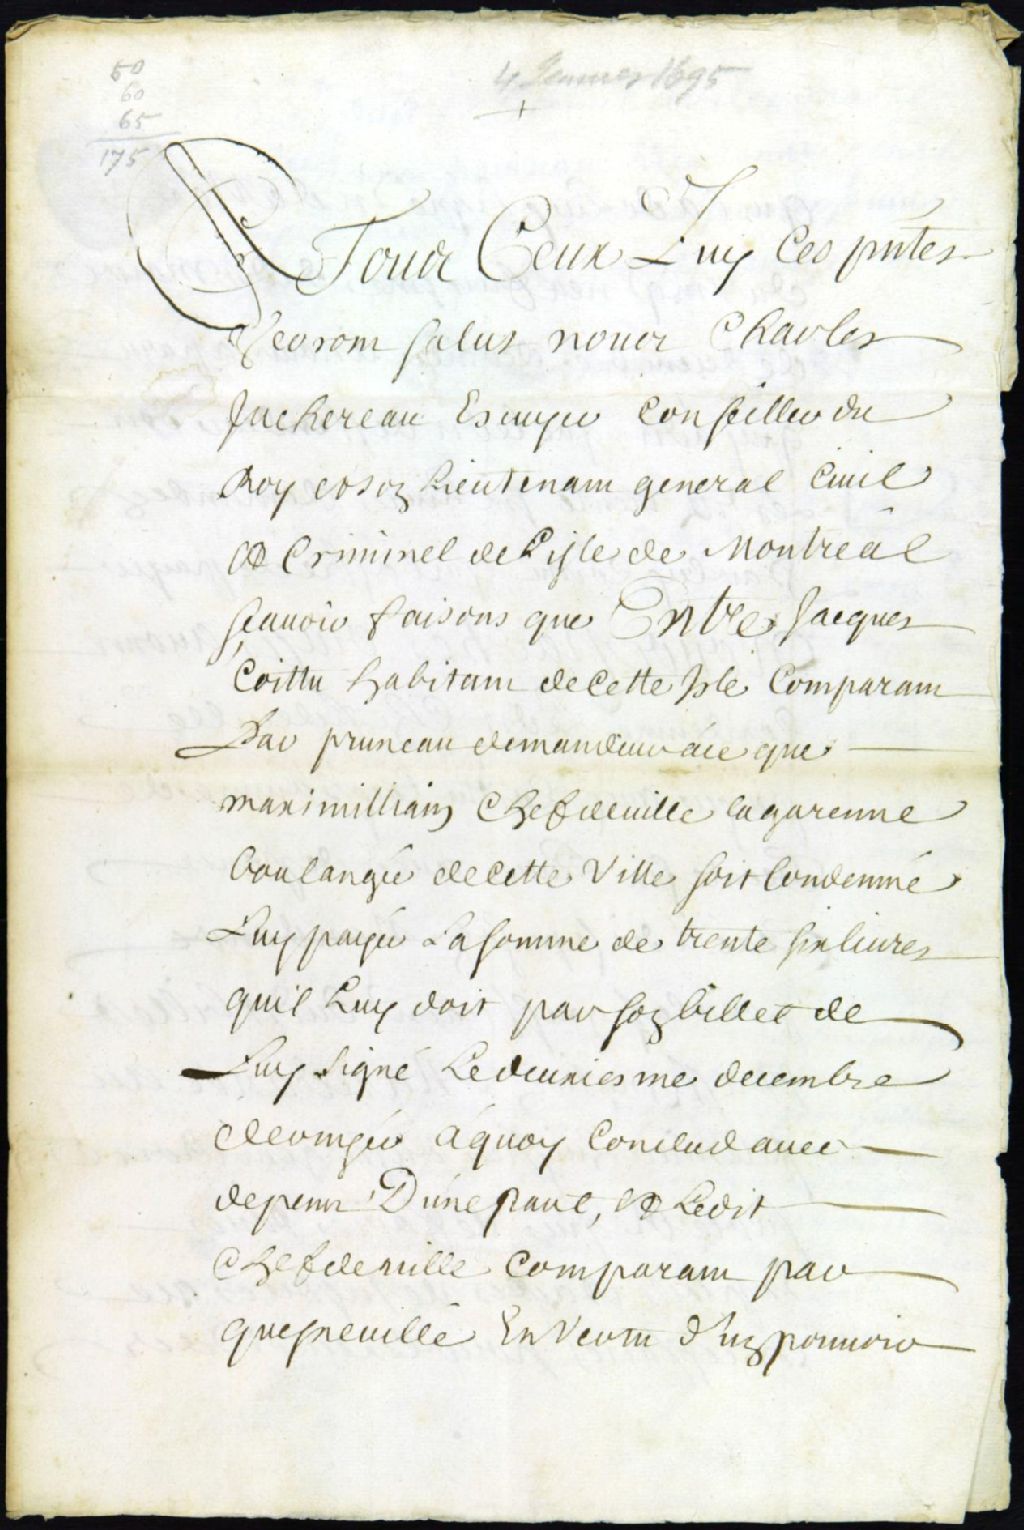 50
60
65
175
4 Janvier 1695
A Tous Ceux Quy Ces pntes
Veoront salut nous Charles
Juchereau Escuyer Conseiller du
Roy et son Lieutenant general Civil
et Criminel de L'isle de Montreal
sçavoir faisons que Entre Jacques
Coittu habitant de Cette Isle Comparant
Par pruneau demandeur áce que
maximillian Chefdeuille lagarenne
boulanger de Cette Ville soit Condemné
Luy payer La somme de trente six liures
quil Luy doit par son billet de
Luy signé Le deuxiesme decembre
dernyer áquoy Conclud auec
depens D'une part, et Ledit
Chefdeuille Comparant par
quesneuille En Vertu d'un pouuoir